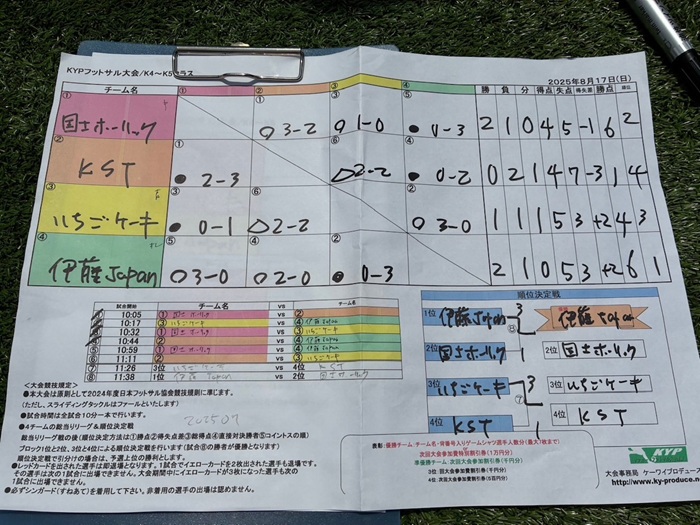 KYPフットサル大会/K4～K5クラス
2025年8月17日(日)
チーム名 ① ② ③ ④ 勝 負 分 得点 失点 得失差 勝点 順位
① 国士ホーリック ① ○3-2 ③ ○1-0 ⑤ ●0-3 2 1 0 4 5 -1 6 2
② KST ① ●2-3 ⑥ △2-2 ④ ●0-2 0 2 1 4 7 -3 1 4
③ いちごケーキ ③ ●0-1 ⑥ △2-2 ② ○3-0 1 1 1 5 3 +2 4 3
④ 伊藤Japan ⑤ ○3-0 ④ ○2-0 ② ●0-3 2 1 0 5 3 +2 6 1
試合開始 チーム名 vs チーム名
① 10:05 ① 国士ホーリック vs ②
② 10:17 ③ いちごケーキ vs ④ 伊藤Japan
③ 10:32 ① 国士ホーリック vs ③ いちごケーキ
④ 10:44 ② vs ④ 伊藤Japan
⑤ 10:59 ① 国士ホーリック vs ④ 伊藤Japan
⑥ 11:11 ② vs ③ いちごケーキ
⑦ 11:26 3位 いちごケーキ vs 4位 KST
⑧ 11:38 1位 伊藤Japan vs 2位 国士ホーリック
順位決定戦
1位 伊藤Japan 3 伊藤Japan
⑧
2位 国士ホーリック 1 2位 国士ホーリック
3位 いちごケーキ 3 3位 いちごケーキ
⑦
4位 KST 1 4位 KST
＜大会競技規定＞
●本大会は原則として2024年度日本フットサル協会競技規則に準じます。
(ただし、スライディングタックルはファールといたします)
●試合時間は全試合10分一本で行います。
●4チームの総当りリーグ＆順位決定戦
総当りリーグ戦の後(順位決定方法は①勝点②得失点差③総得点④直接対決勝者⑤コイントスの順)
ブロック1位と2位、3位と4位による順位決定戦を行います(試合⑧の勝者が優勝となります)
順位決定戦で引分けの場合は、予選上位の勝利とします。
●レッドカードを出された選手は即退場となります。1試合でイエローカードを2枚出された選手も退場です。
その選手は次の1試合に出場できません。大会期間中にイエローカードが3枚になった選手も次の
1試合に出場できません。
●必ずシンガード(すねあて)を着用して下さい。非着用の選手の出場は認めません。
202507
表彰：優勝チーム：チーム名・背番号入りゲームシャツ選手人数分(最大1枚まで)
次回大会参加費特別割引券(1万円分)
準優勝チーム：次回大会参加割引券(千円分)
3位：次回大会参加割引券(千円分)
KYP
大会事務局 ケーワイプロデュース
http://www.ky-produce.ne